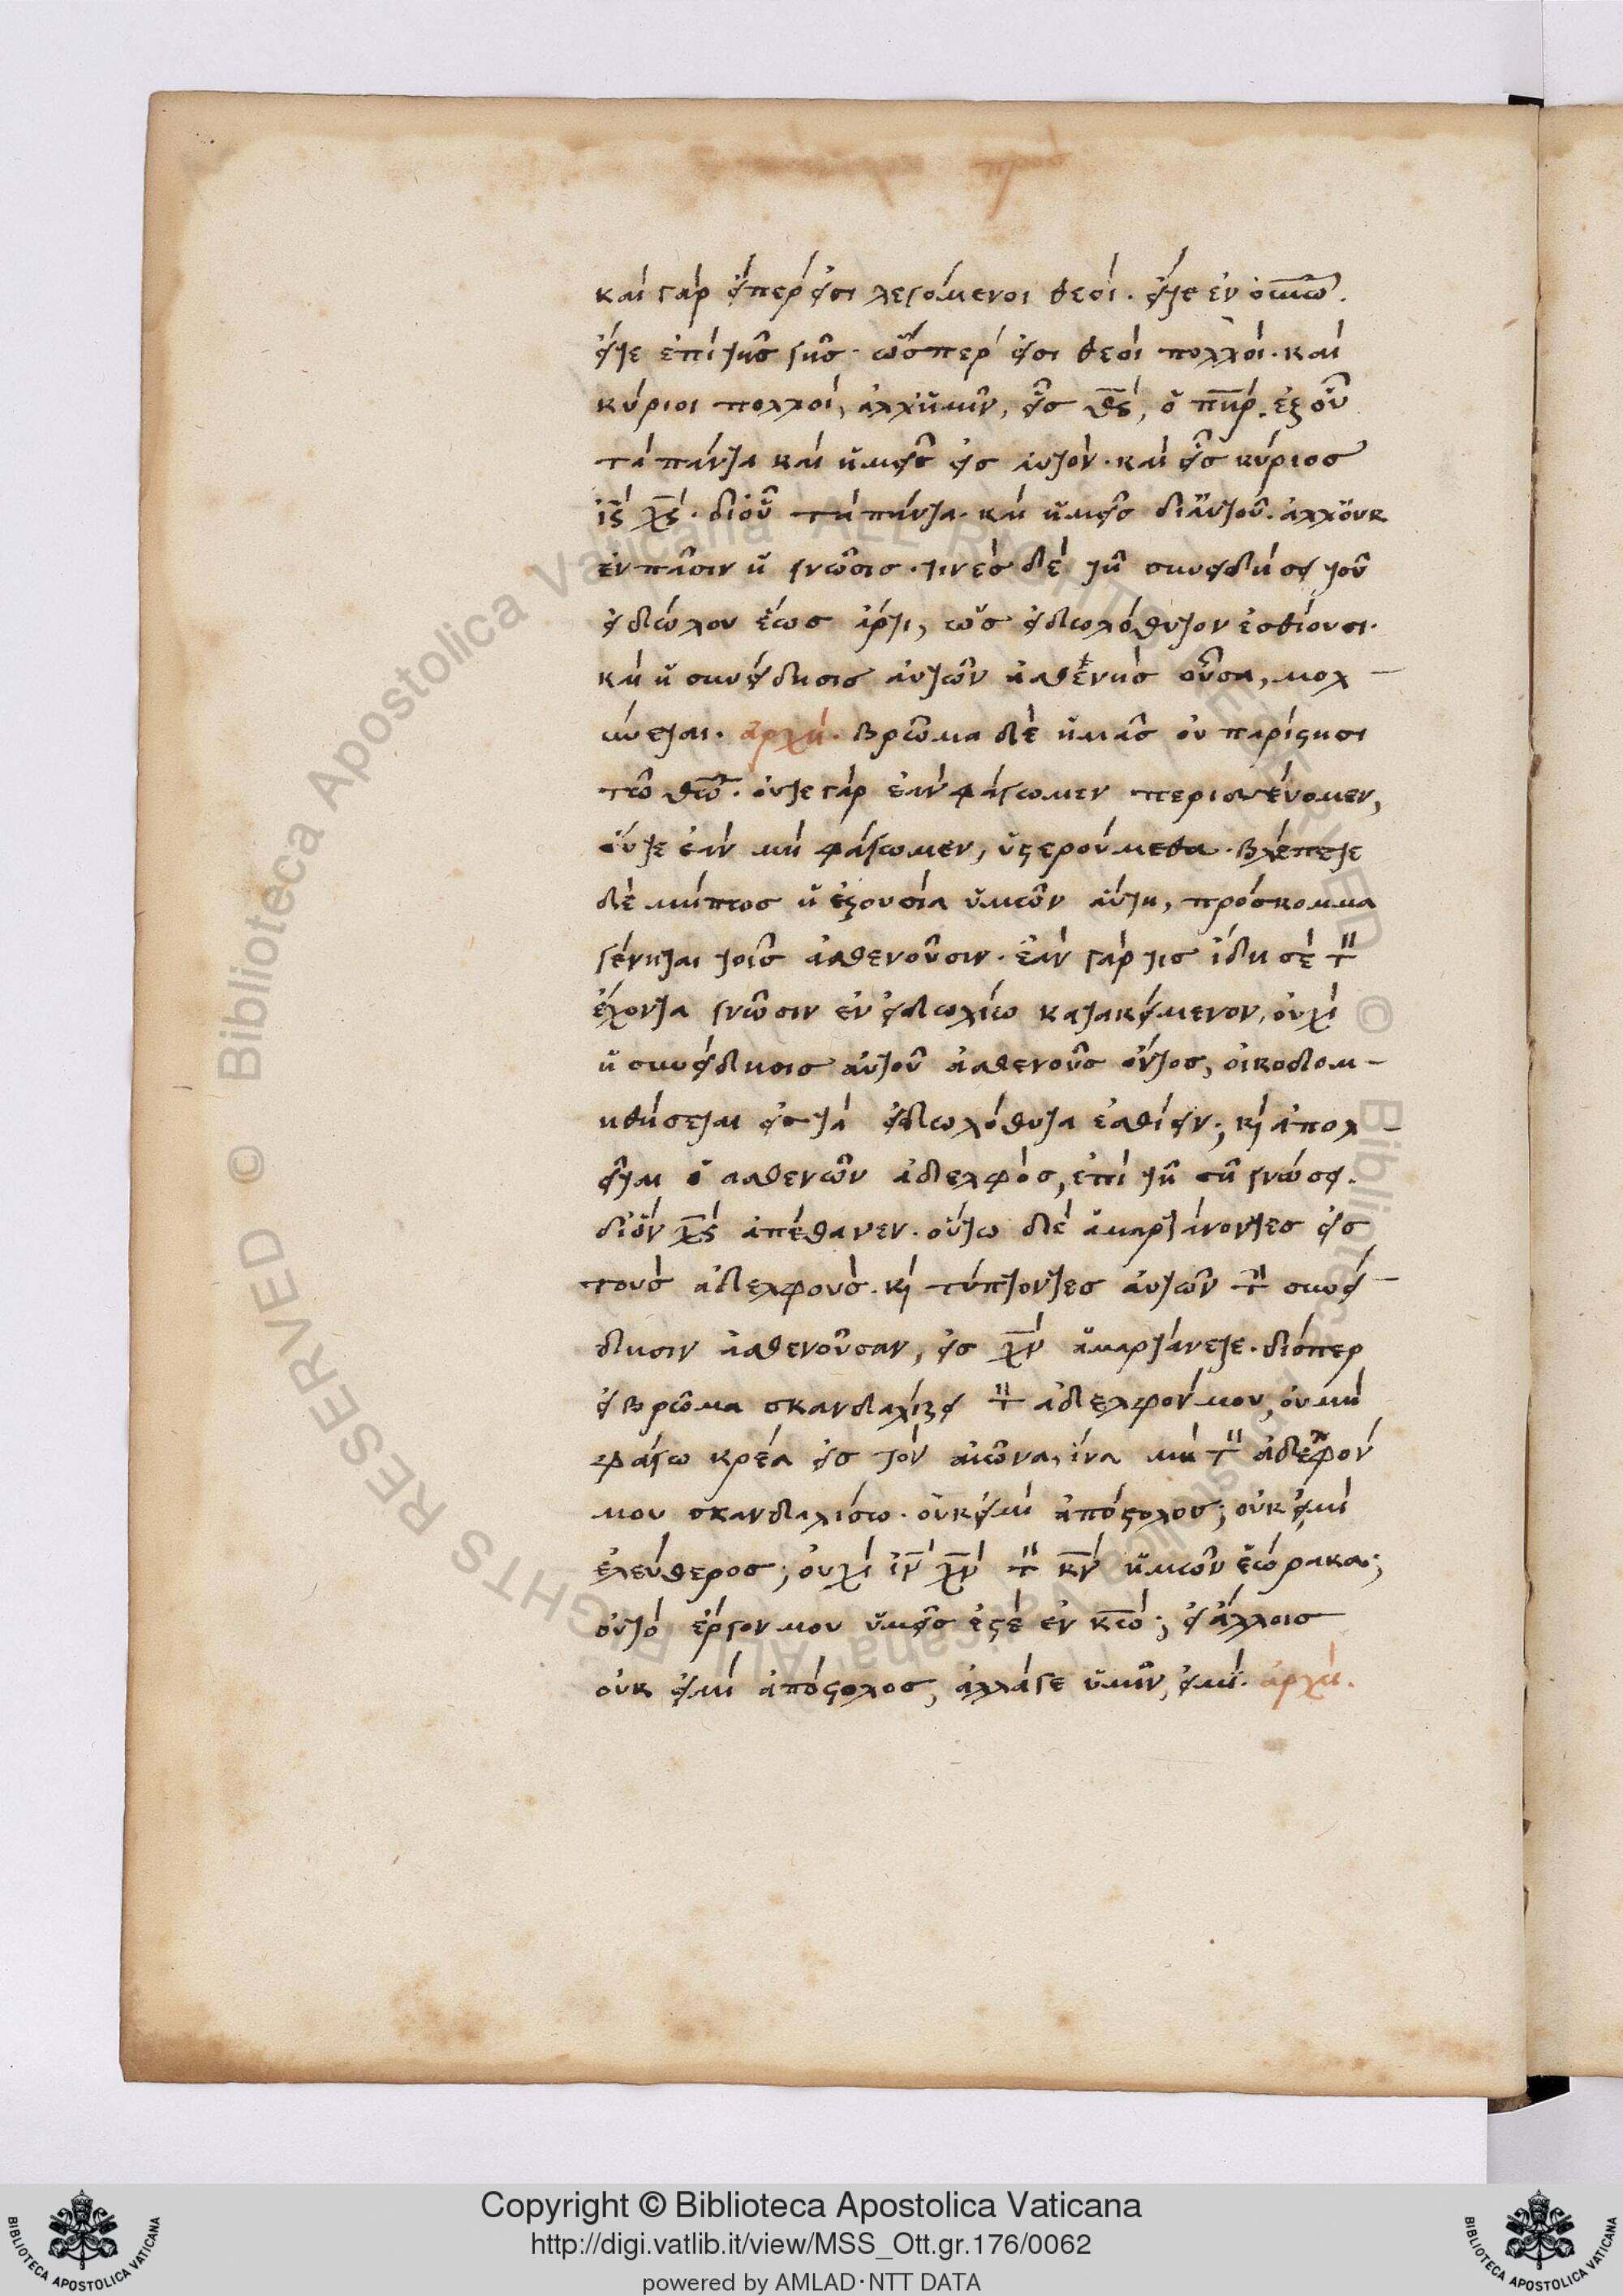 καὶ γὰρ εἴπερ εἰσι λεγόμενοι θεοὶ. εἴτε ἐν ὀυ̅νω̅.
εἴτε ἐπὶ τῆς γῆς. ὥσπερ εἰσι θεοὶ πολλοὶ. καὶ
κύριοι πολλοὶ, ἀλλ' ἡμῖν, εἷς θ̅ς̅, ὁ π̅η̅ρ. ἐξ οὗ
τὰ πάντα καὶ ἡμεῖς εἰς αὐτὸν. καὶ εἷς κύριος
ι̅ς̅ χ̅ς̅. δι' οὗ τὰ πάντα. καὶ ἡμεῖς δι' αὐτοῦ. ἀλλ' οὐκ
ἐν πᾶσιν ἡ γνῶσις. τινὲς δὲ τῇ συνειδήσει τοῦ
εἰδώλου ἕως ἄρτι, ὡς εἰδωλόθυτον ἐσθίουσι.
καὶ ἡ συνείδησις αὐτῶν ἀσθενὴς οὖσα, μολ
ύνεται. ἀρχὴ. βρῶμα δὲ ἡμᾶς οὐ παρίστησι
τῶ θ̅ω̅. οὔτε γὰρ ἐὰν φάγωμεν περισσεύομεν,
οὔτε ἐὰν μὴ φάγωμεν, ὑστερούμεθα. βλέπετε
δὲ μήπως ἡ ἐξουσία ὑμῶν αὕτη, πρόσκομμα
γένηται τοῖς ἀσθενοῦσιν. ἐὰν γάρ τις ἴδη σὲ τ̅
ἔχοντα γνῶσιν ἐν εἰδωλίω κατακείμενον, οὐχὶ
ἡ συνείδησις αὐτοῦ ἀσθενοῦς ὄντος, οἰκοδομ
ηθήσεται εἰς τὰ εἰδωλόθυτα ἐσθίειν; κὶ ἀπολ
εῖται ὁ ἀσθενῶν ἀδελφὸς, ἐπὶ τῇ σῇ γνώσει.
δι' ὃν χ̅ς̅ ἀπέθανεν. οὕτω δὲ ἁμαρτάνοντες εἰς
τοὺς ἀδελφοὺς. κὶ τύπτοντες αὐτῶν τ̅ συνεί
δησιν ἀσθενοῦσαν, εἰς χ̅ν̅ ἁμαρτάνετε. διόπερ
εἰ βρῶμα σκανδαλίζει τ̅ ἀδελφόν μου, οὐ μὴ
φάγω κρέα εἰς τὸν αἰῶνα, ἵνα μὴ τ̅ ἀδελφόν
μου σκανδαλίσω. οὐκ εἰμὶ ἀπόστολος; οὐκ εἰμὶ
ἐλεύθερος; οὐχὶ ι̅ν̅ χ̅ν̅ τ̅ κ̅ν̅ ἡμῶν ἑώρακα;
οὐ τὸ ἔργον μου ὑμεῖς ἐστὲ ἐν κ̅ω̅; εἰ ἄλλοις
οὐκ εἰμὶ ἀπόστολος, ἀλλάγε ὑμῖν, εἰμὶ. ἀρχὴ.
Copyright © Biblioteca Apostolica Vaticana
http://digi.vatlib.it/view/MSS_Ott.gr.176/0062
powered by AMLAD·NTT DATA